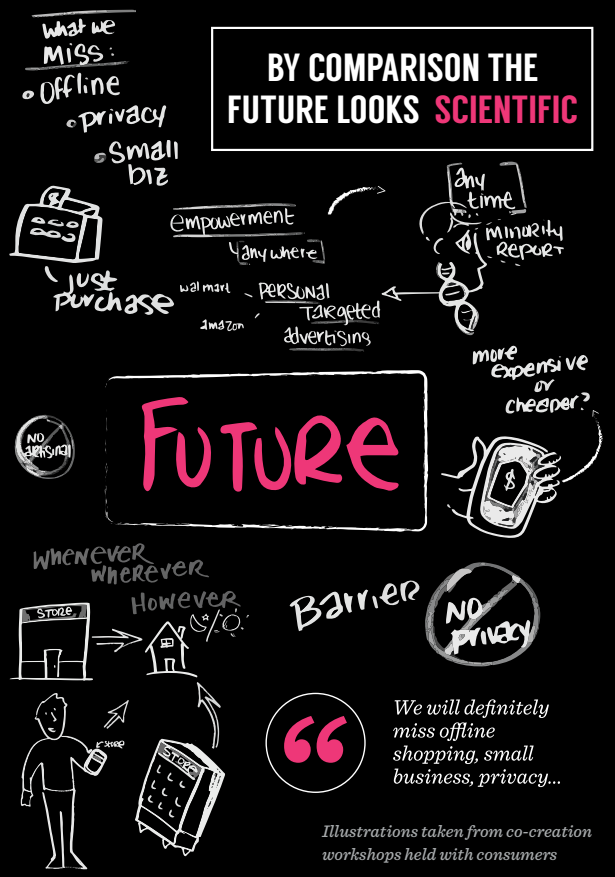 What we
MISS:
Offline
privacy
Small
biz
BY COMPARISON THE
FUTURE LOOKS SCIENTIFIC
any
time
MINORITY
REPORT
empowerment
anywhere
Just
purchase
walmart
amazon
PERSONAL
TARgeTed
advertising
more
expensive
or
cheaper?
$
FUTURE
NO
artisinal
WHENEVER
WHEREVER
HOWEVER
STORE
Barrier
NO
privacy
STORE
STORE
“
We will definitely
miss offline
shopping, small
business, privacy...
Illustrations taken from co-creation
workshops held with consumers